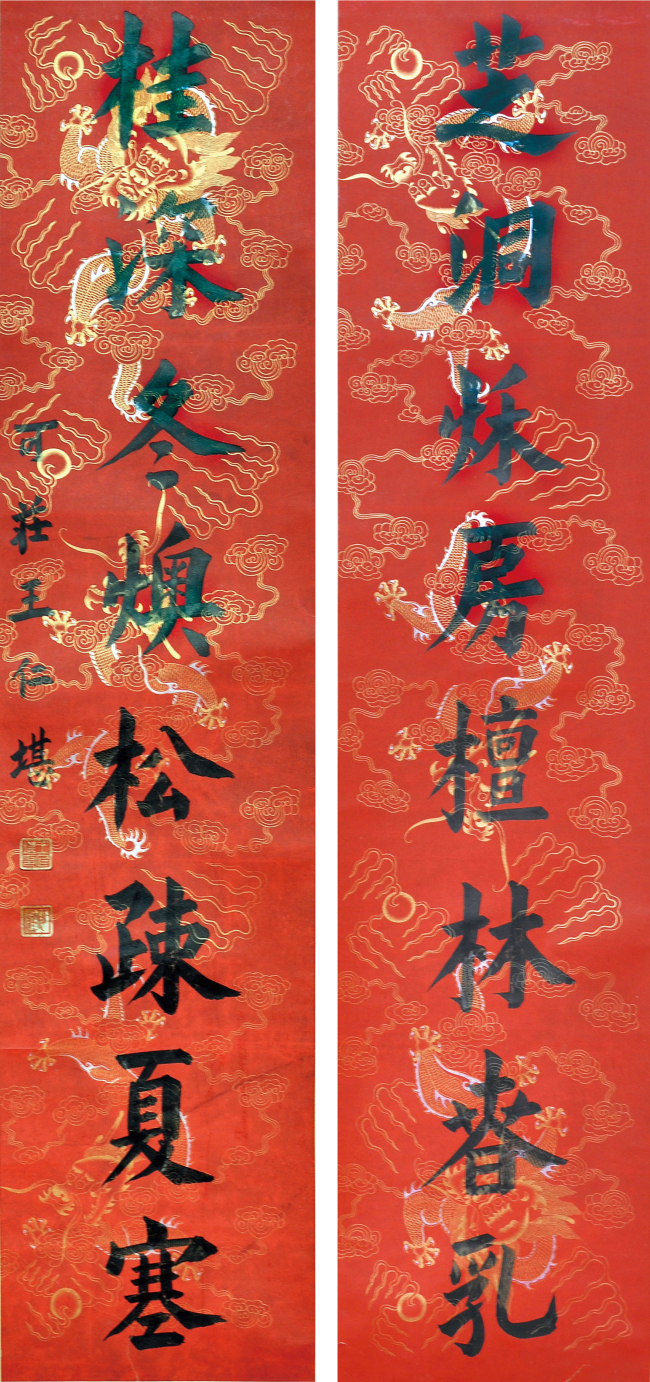 芝洞秋房檀林春乳
桂深冬燠松疎夏寒
可莊王仁堪